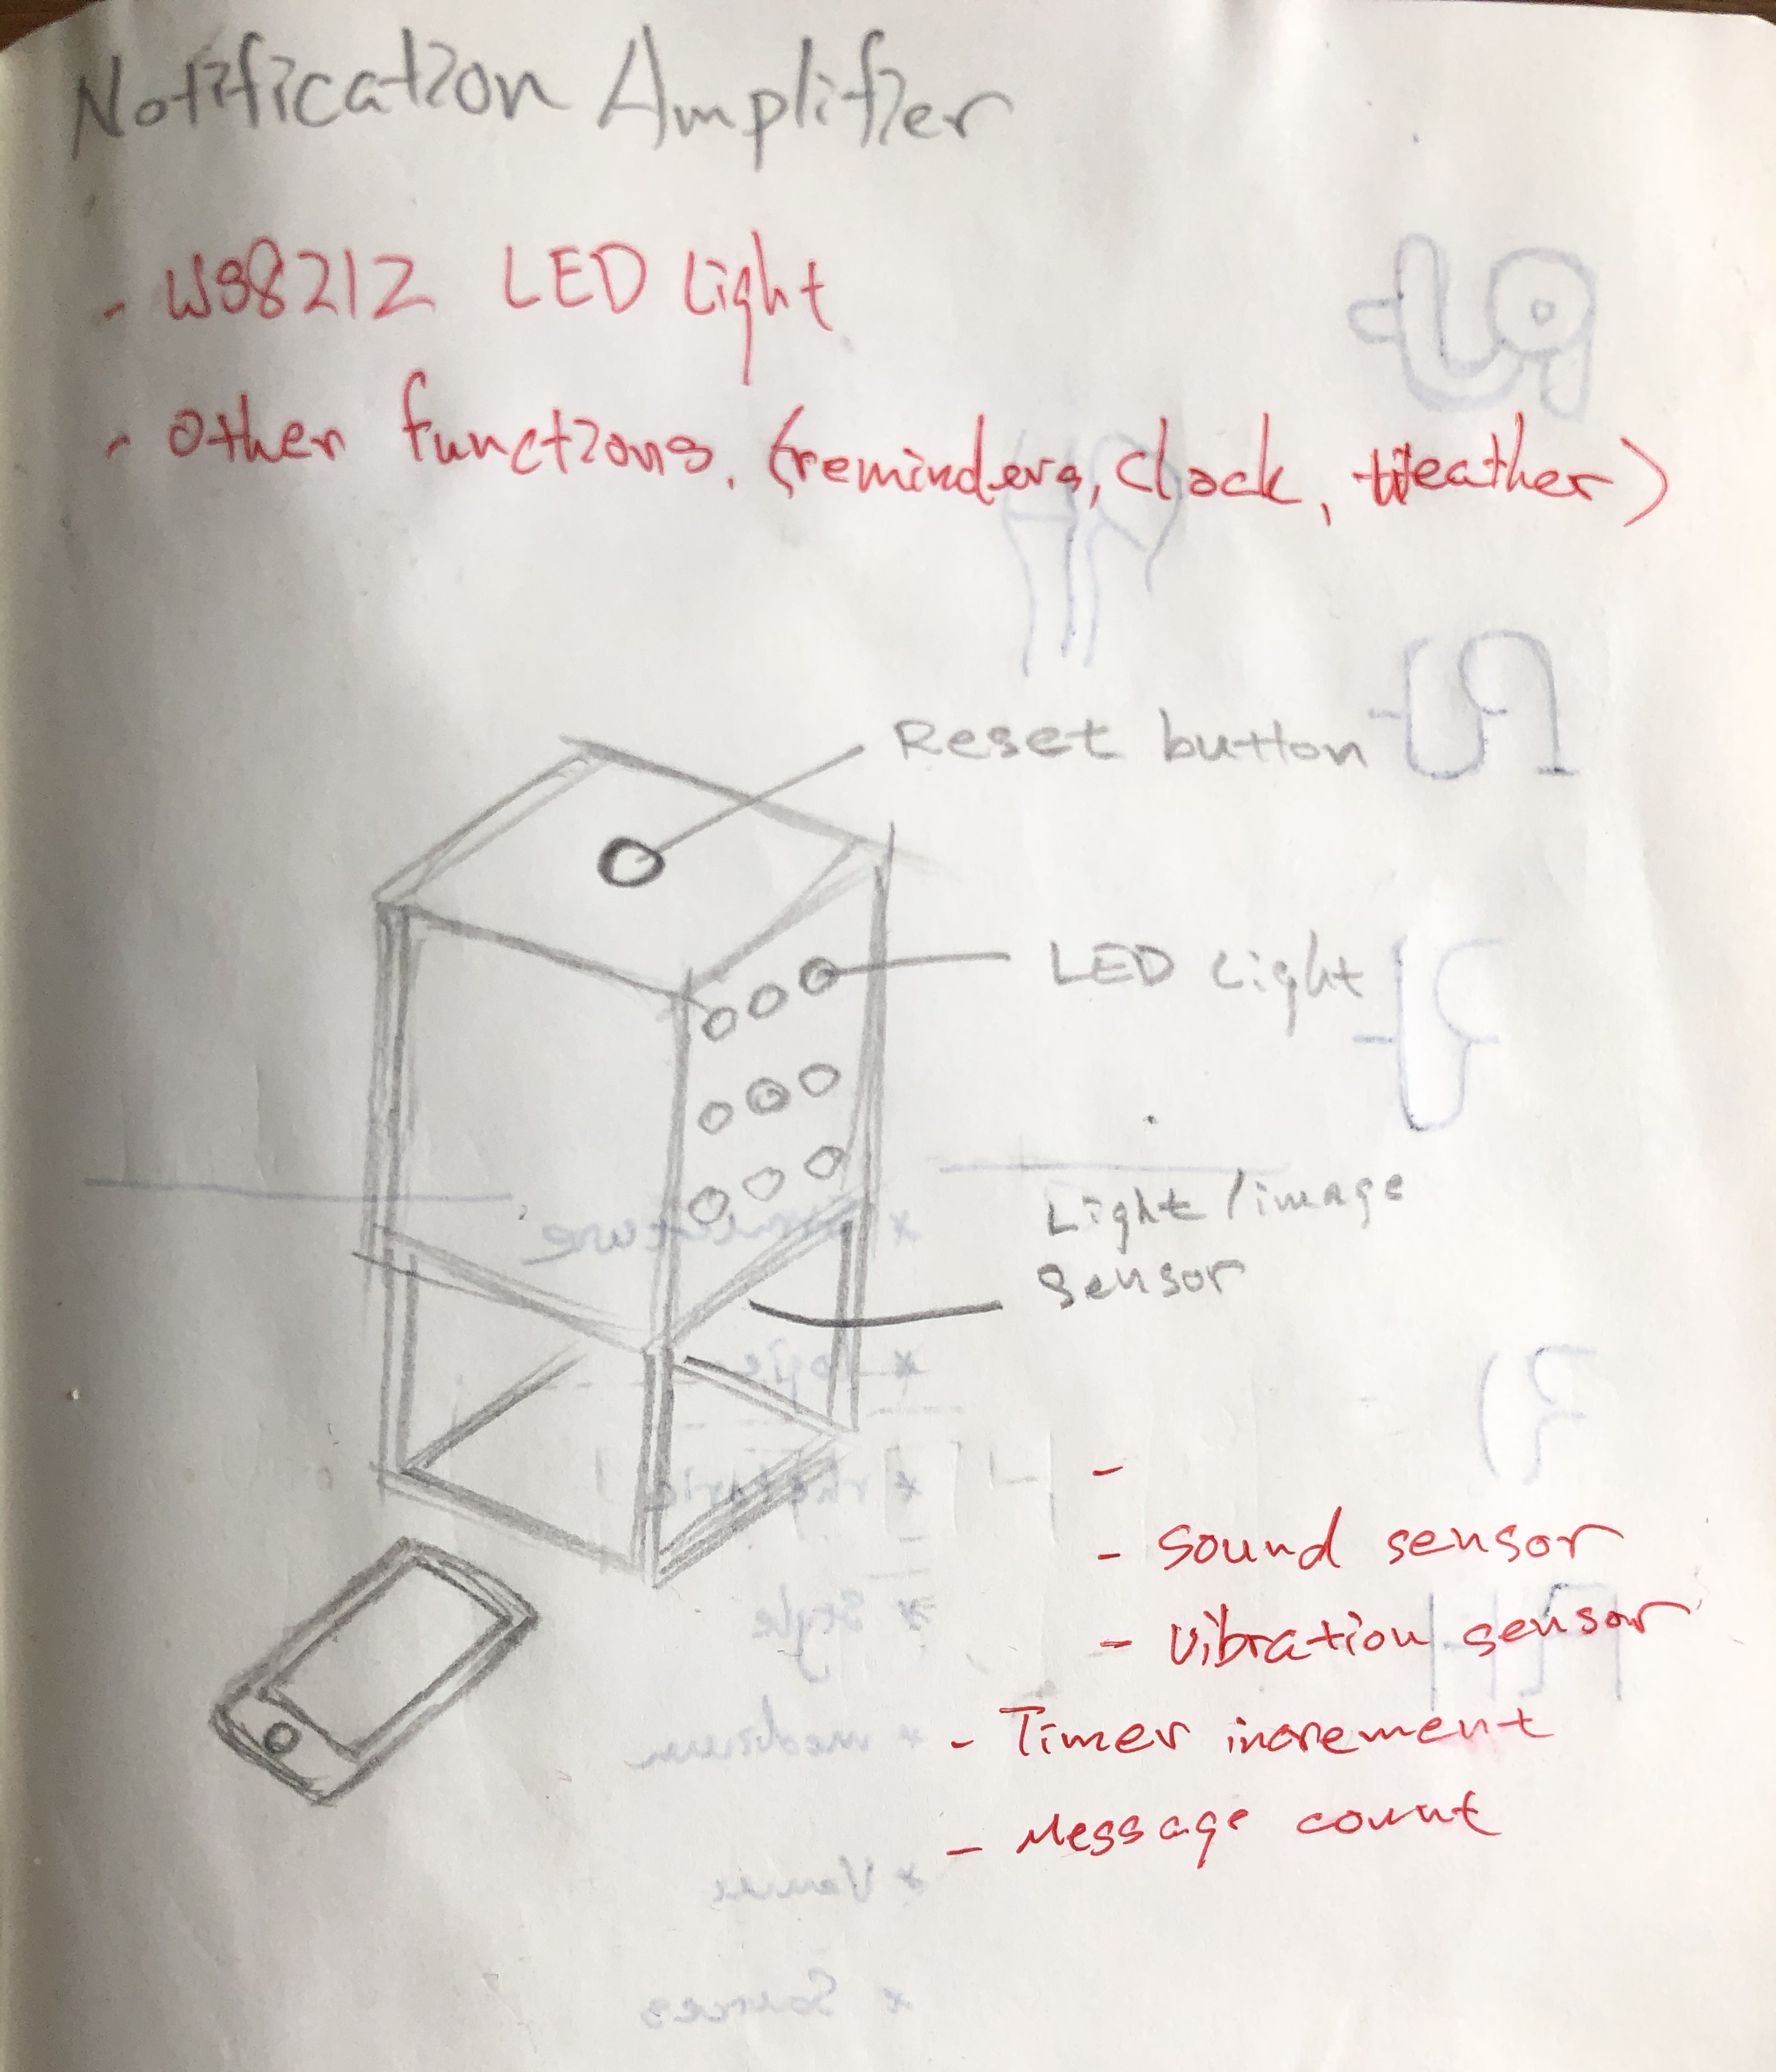 Notification Amplifier
- WS8212 LED Light
- Other functions. (reminders, Clock, Weather)
Reset button
LED Light
Light/image
sensor
-
- Sound sensor
- Vibration sensor
- Timer increment
- Message count
* logic
* rhetoric
* Style
* medium
* Sources